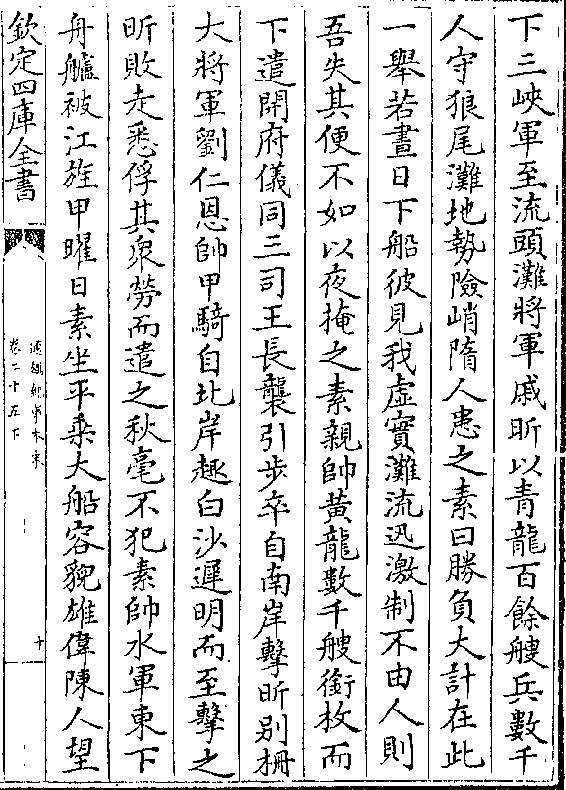 下三峽軍至流頭灘將軍戚昕以青龍百餘艘兵數千
人守狼尾灘地勢險峭隋人患之素曰勝負大計在此
一舉若晝日下船彼見我虛實灘流迅激制不由人則
吾失其便不如以夜掩之素親帥黃龍數千艘銜枚而
下遣開府儀同三司王長襲引步卒自南岸擊昕别柵
大將軍劉仁恩帥甲騎自北岸趣白沙遲明而至擊之
昕敗走悉俘其衆勞而遣之秋毫不犯素帥水軍東下
舟艫被江旌甲曜日素坐平乘大船容貌雄偉陳人望
欽定四庫全書
通鑑紀事本末
卷二十五下
十